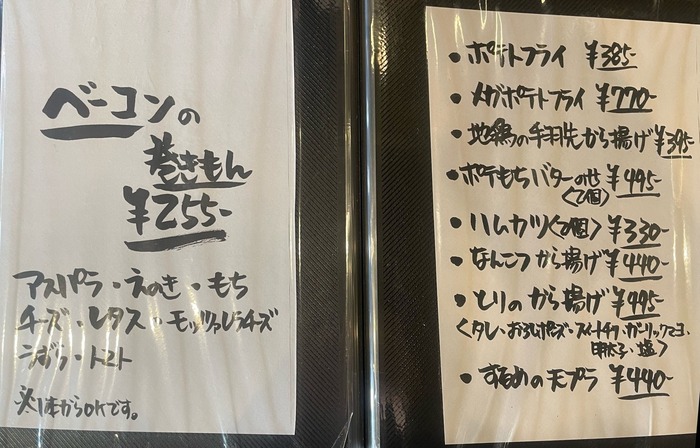 ベーコンの
巻きもん
¥255-
アスパラ・えのき・もち
チーズ・レタス・モッツァレラチーズ
うずら・トマト
※1本からOKです。
・ポテトフライ ¥385-
・メガポテトフライ ¥770-
・地鶏の手羽先から揚げ ¥395-
・ポテもちバターのせ ¥495-
〈2個〉
・ハムカツ〈2個〉 ¥330-
・なんこつから揚げ ¥440-
・とりのから揚げ ¥495-
〈タレ・おろしポン酢・スイートチリ・ガーリックマヨ・
明太子・塩〉
・するめの天プラ ¥440-